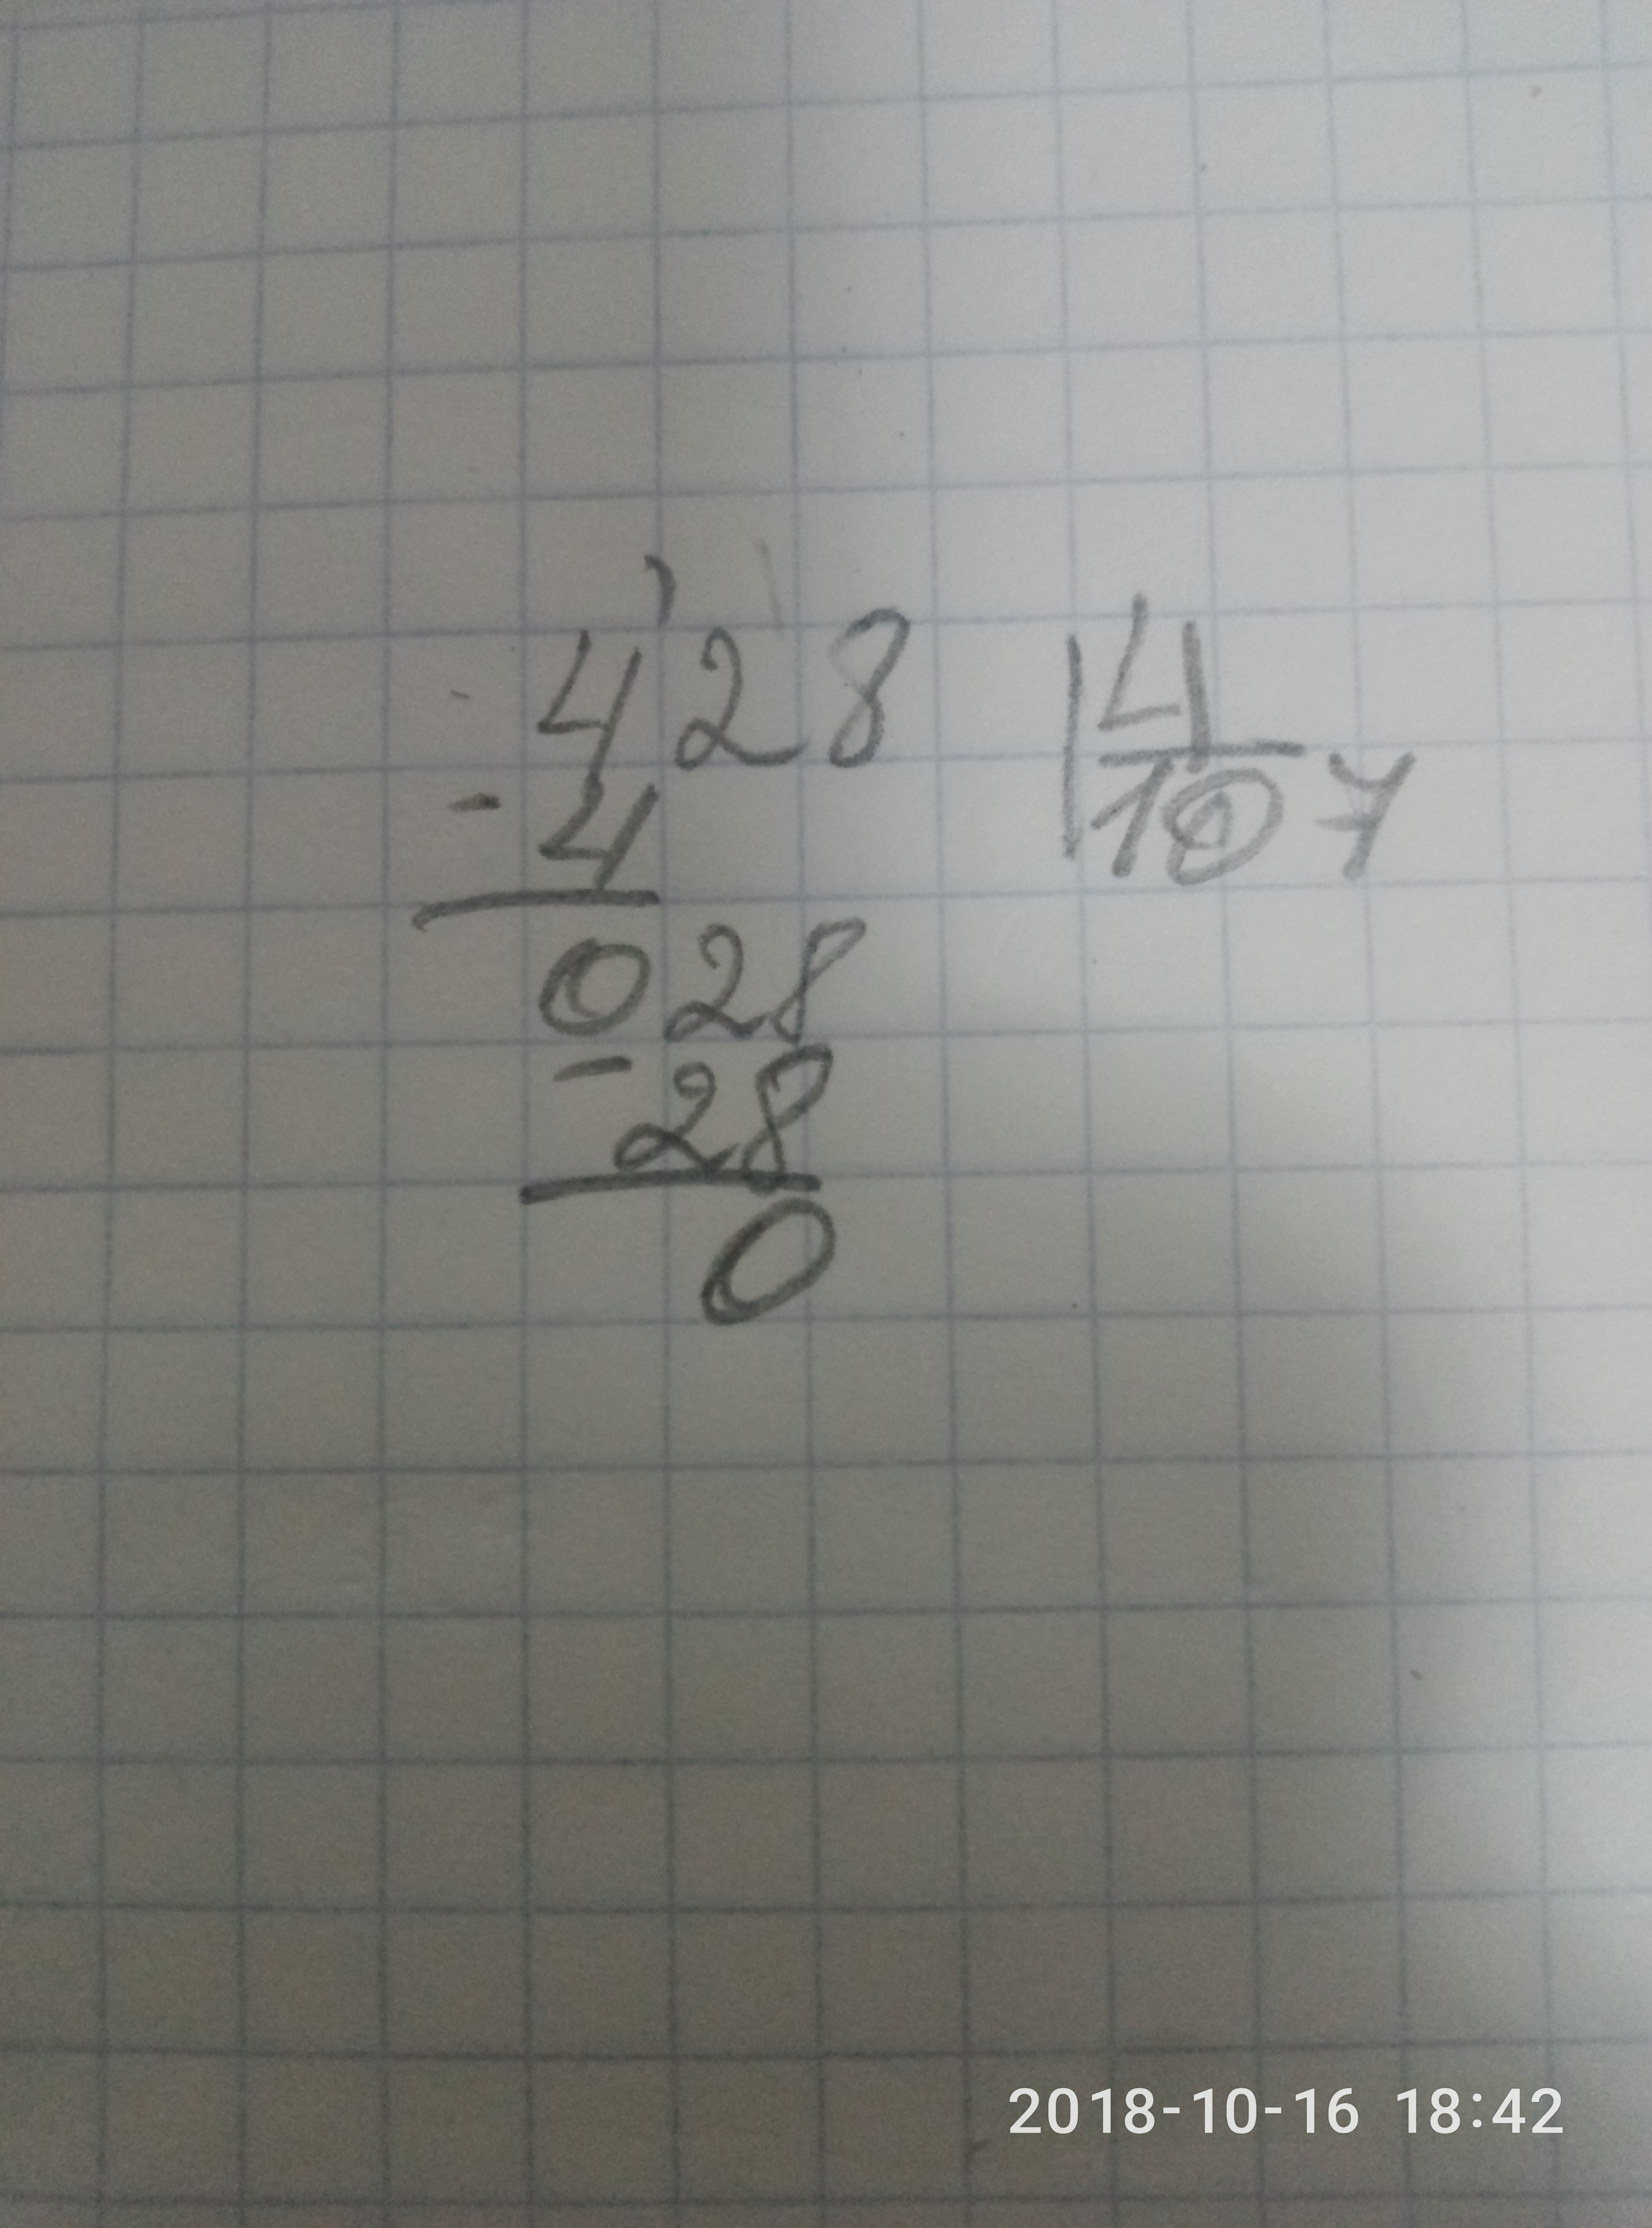 428 | 4
- 4 107
028
- 28
0
2018-10-16 18:42